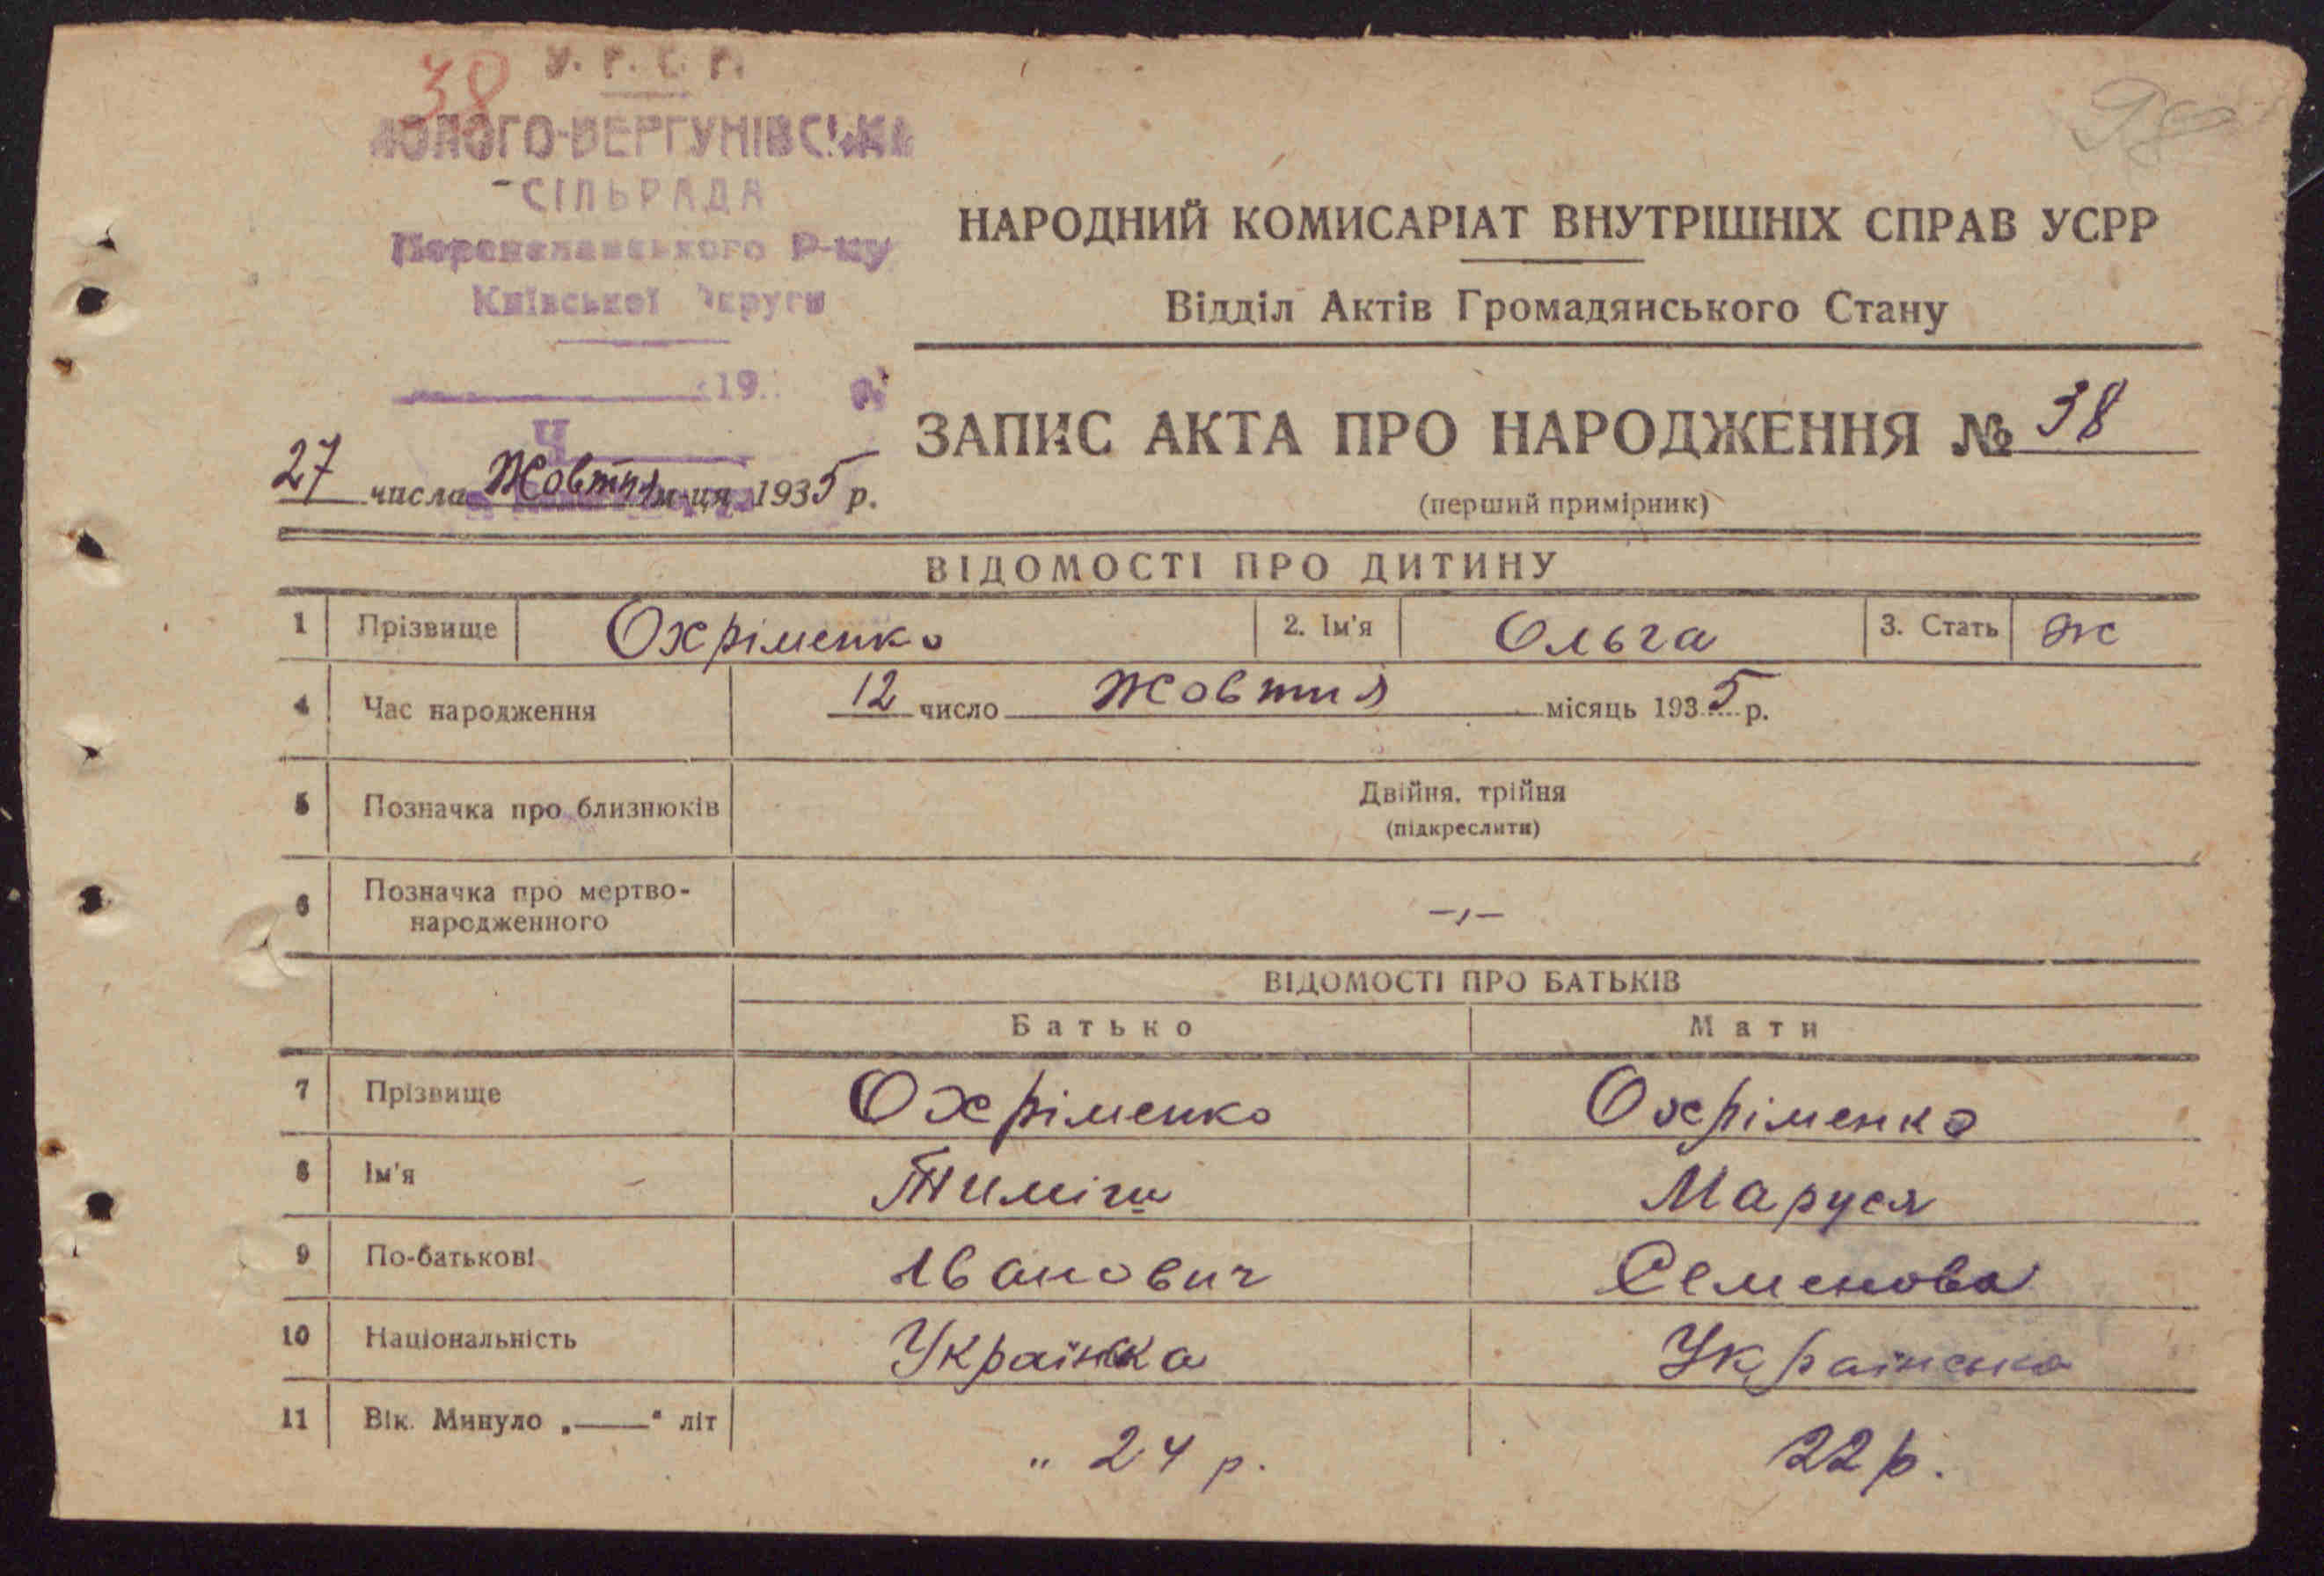 38
У. Р. С. Р.
СІЛЬРАДА
Переяславського Р-ну
Київської Округи
19 р.
Ч
98
НАРОДНИЙ КОМИСАРІАТ ВНУТРІШНІХ СПРАВ УСРР
Відділ Актів Громадянського Стану
ЗАПИС АКТА ПРО НАРОДЖЕННЯ № 38
27 числа Жовтня м-ця 1935 р.
(перший примірник)
ВІДОМОСТІ ПРО ДИТИНУ
1 Прізвище Охріменко 2. Ім'я Ольга 3. Стать ж
4 Час народження 12 число жовтня місяць 1935 р.
5 Позначка про близнюків Двійня, трійня
(підкреслити)
6 Позначка про мертво-
народженного -,-
ВІДОМОСТІ ПРО БАТЬКІВ
Батько Мати
7 Прізвище Охріменко Охріменко
8 Ім'я Тиміш Маруся
9 По-батькові Іванович Семенова
10 Національність Українка Українська
11 Вік. Минуло „——“ літ „ 24 р. 22 р.